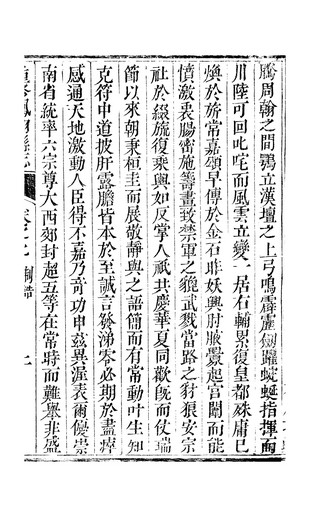 騰周翰之間鶚立漢壇之上弓鳴霹靂劒躍蜿蜒指揮而
川陸可回叱咤而風雲立變一居右輔累復皇都殊庸已
煥於旂常嘉頌早傳於金石昨妖興肘腋釁起宮闈而能
憤激衷腸密施籌畫致禁軍之貔武戮當路之豺狼安宗
社於綴旒復乘輿如反掌人祇共慶華夏同歡旣而仗瑞
節以來朝秉桓圭而展敬靜與之語簡而有常動叶生知
克符中道披肝露膽皆本於至誠言發涕零必期於盡瘁
感通天地激動人臣得不嘉乃奇功申兹異渥表爾優崇
南省統率六宗尊大西郊封超五等在常時而難舉非盛